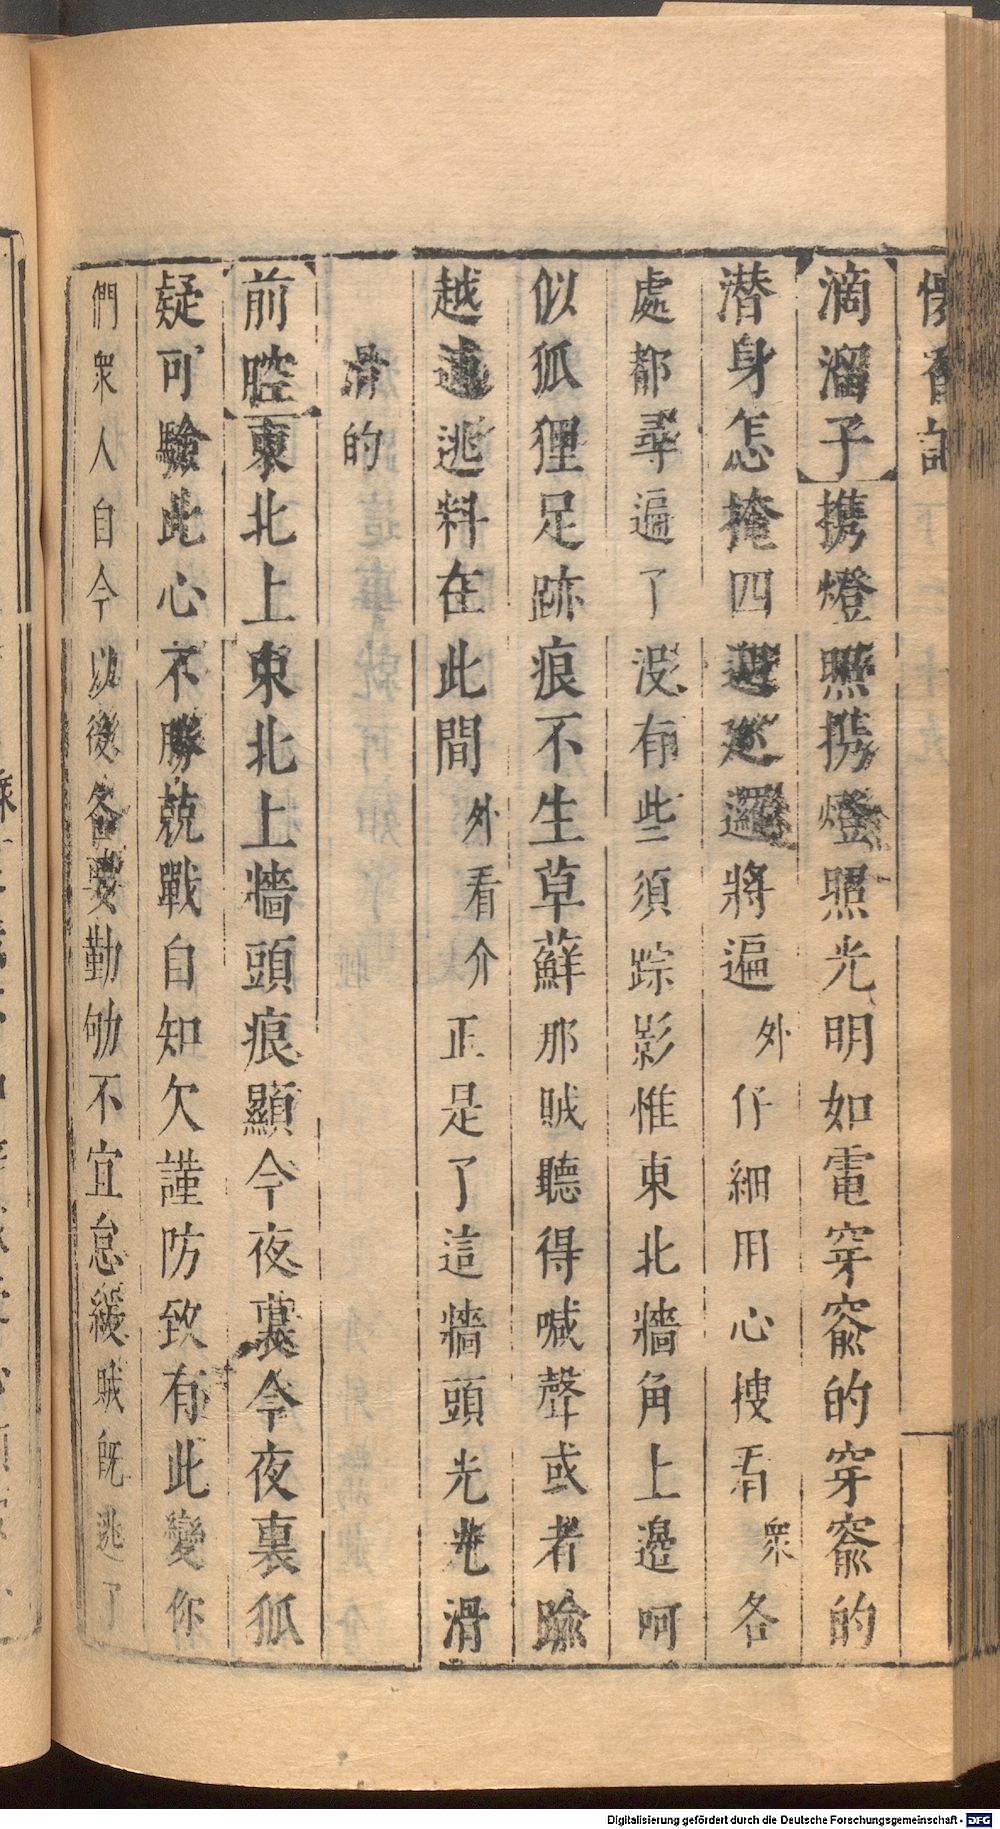 懷香記
滴溜子携燈照携燈照光明如電穿窬的穿窬的
潜身怎掩四週廵邏將遍外仔細用心捜看衆各
處都尋遍了没有些須踪影惟東北牆角上邉呵
似狐狸足跡痕不生草蘚那賊聽得喊聲或者踰
越逃料在此間外看介正是了這牆頭光光滑
滑的
前腔東北上東北上牆頭痕顯今夜裏今夜裏狐
疑可驗此心不勝兢戰自知欠謹防致有此變你
們衆人自今以後各要勤劬不宜怠緩賊既逃了
Digitalisierung gefördert durch die Deutsche Forschungsgemeinschaft - DFG